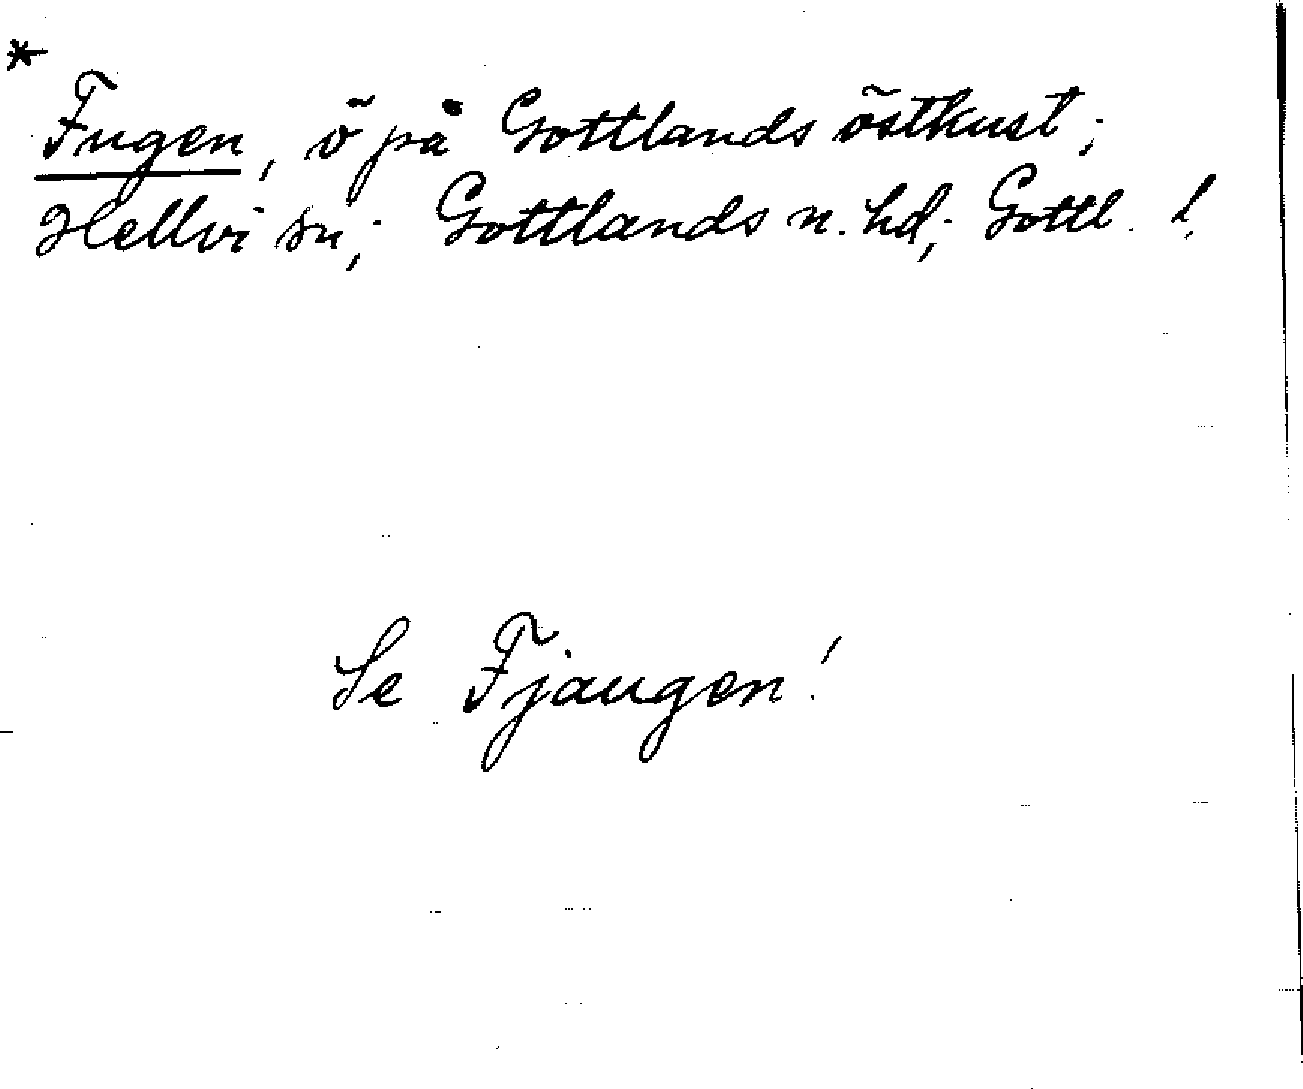 *
Fugen, ö på Gottlands östkust;
Hellvi sn; Gottlands n. hd; Gottl. l.
Se Fjaugen!